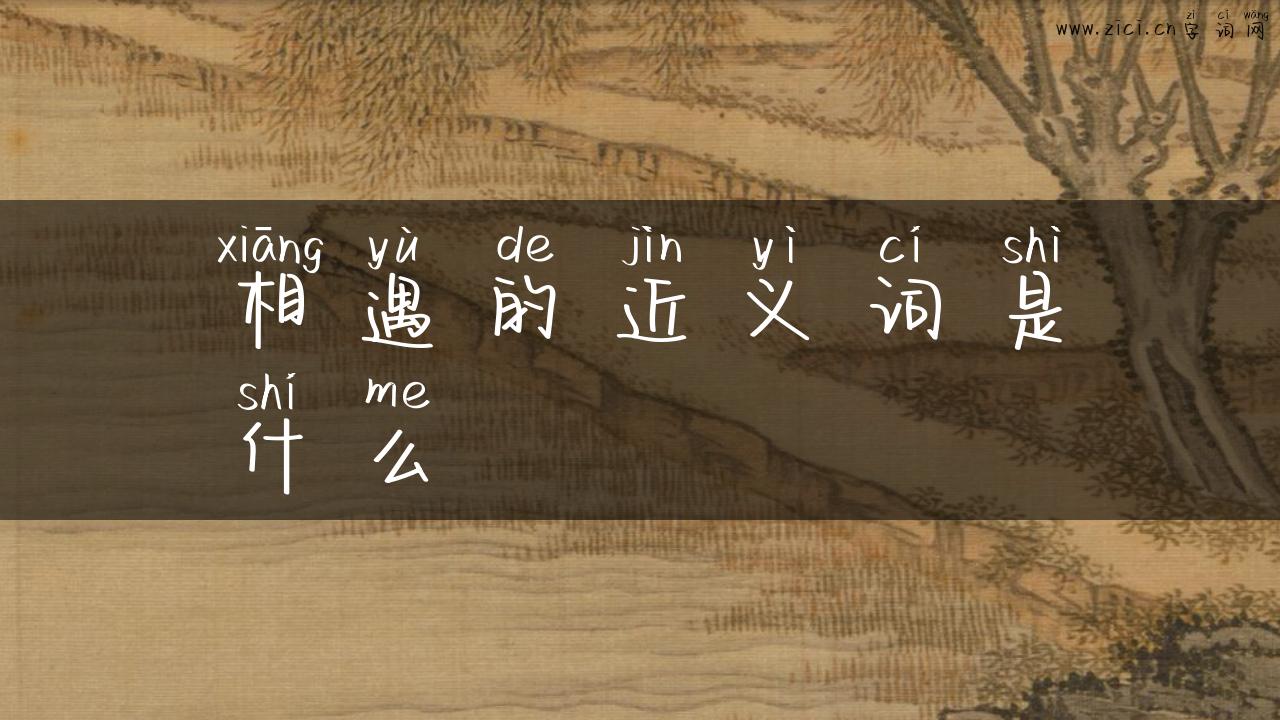 zì cí wǎng
www.zici.cn字词网
xiāng yù de jìn yì cí shì
相遇的近义词是
shí me
什么